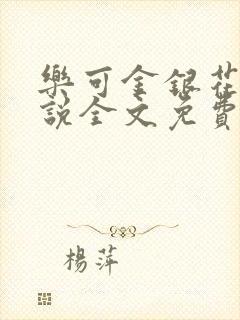 樂可金銀花
說全文免費
楊萍